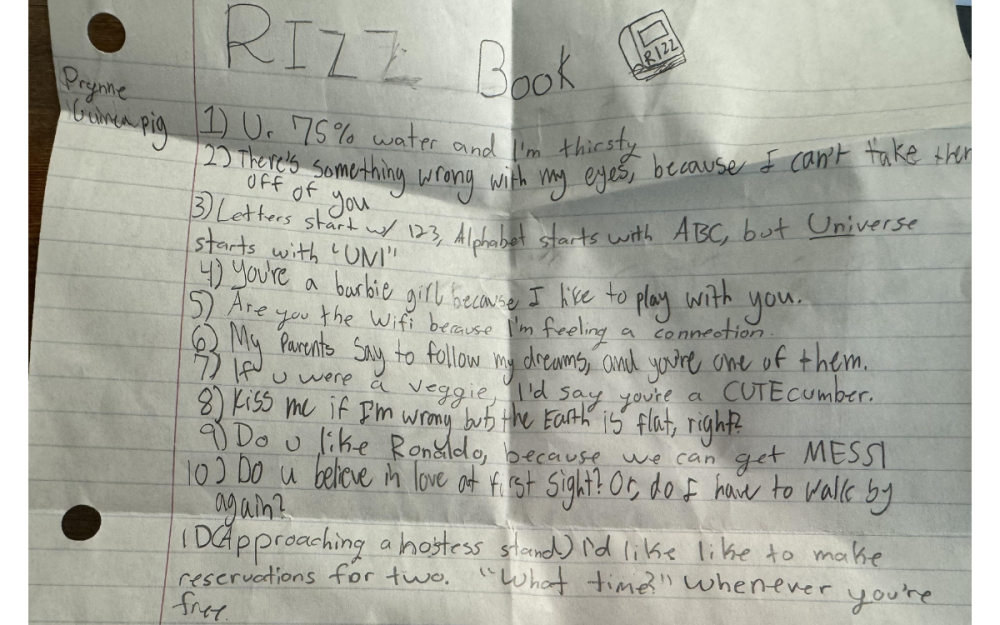 RIZZ Book
RIZZ
Prynne
Guinea pig
1) U r 75% water and I'm thirsty
2) There's something wrong with my eyes, because I can't take them
off of you
3) Letters start w/ 123, Alphabet starts with ABC, but Universe
starts with "UNI"
4) You're a barbie girl because I like to play with you.
5) Are you the Wifi because I'm feeling a connection.
6) My Parents Say to follow my dreams, and you're one of them.
7) If u were a veggie, I'd say you're a CUTEcumber.
8) Kiss me if I'm wrong but, the Earth is flat, right?
9) Do u like Ronaldo, because we can get MESSI
10) Do u believe in love at first sight? Or, do I have to walk by
again?
11) (Approaching a hostess stand) I'd like like to make
reservations for two. "What time?" whenever you're
free.